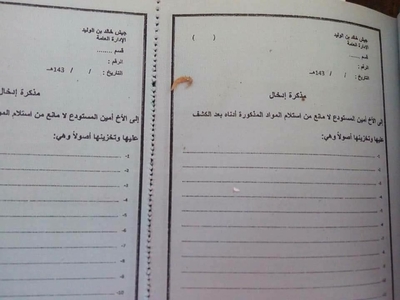 جيش خالد بن الوليد
الإدارة العامة ( )
قسم ........
الرقم :
التاريخ : / / 143هـ
مذكرة إدخال
إلى الأخ أمين المستودع لا مانع من استلام المواد المذكورة أدناه بعد الكشف
عليها وتخزينها أصولاً وهي:
-1
-2
-3
-4
-5
-6
-7
-8
-9
جيش خالد بن الوليد
الإدارة العامة
قسم ........
الرقم :
التاريخ : / / 143هـ
مذكرة إدخال
إلى الأخ أمين المستودع لا مانع من استلام المواد
عليها وتخزينها أصولاً وهي:
-1
-2
-3
-4
-5
-6
-7
-8
-9
-10